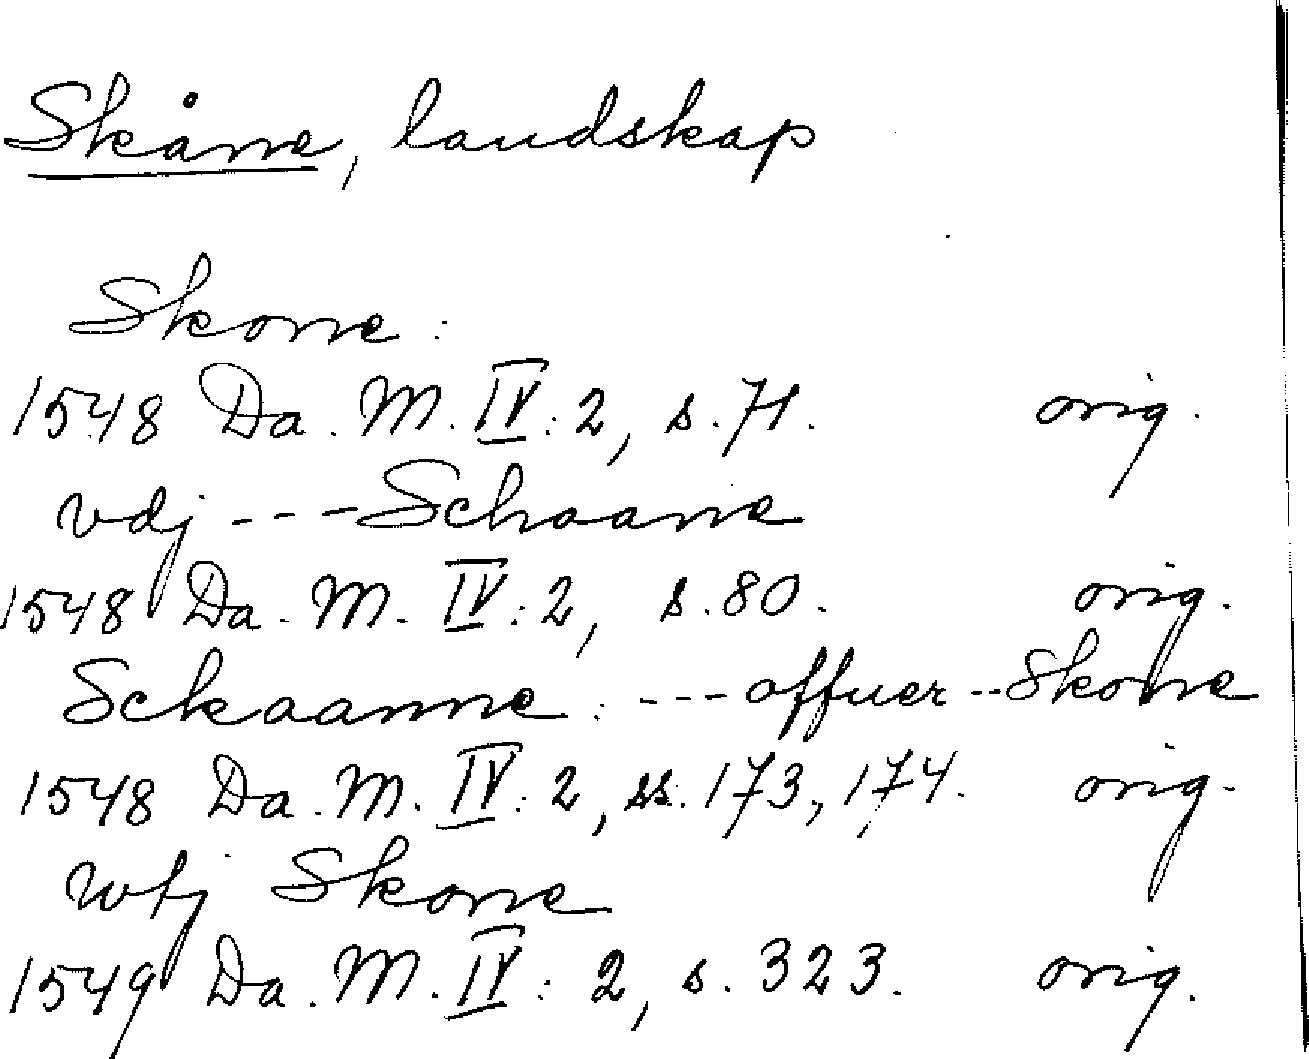 Skåne, landskap
Skone:
1548 Da. M. IV: 2, s. 71. orig.
vdj --- Schaane
1548 Da. M. IV: 2, s. 80. orig.
Sckaanne: --- offuer -- Skone
1548 Da. M. IV: 2, ss. 173, 174. orig.
wtj Skone
1549 Da. M. IV: 2, s. 323. orig.